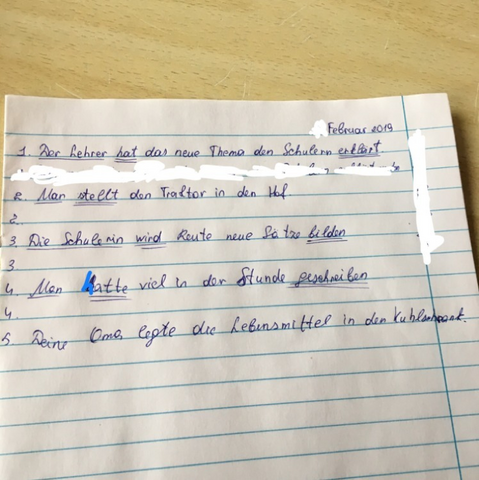 Februar 2019
1. Der Lehrer hat das neue Thema den Schulern erklärt
2. Man stellt den Traktor in den Hof.
2.
3. Die Schulerin wird heute neue Sätze bilden
3.
4. Man hatte viel in der Stunde geschreiben
4.
5. Deine Oma legte die Lebensmittel in den Kuhlschrank.